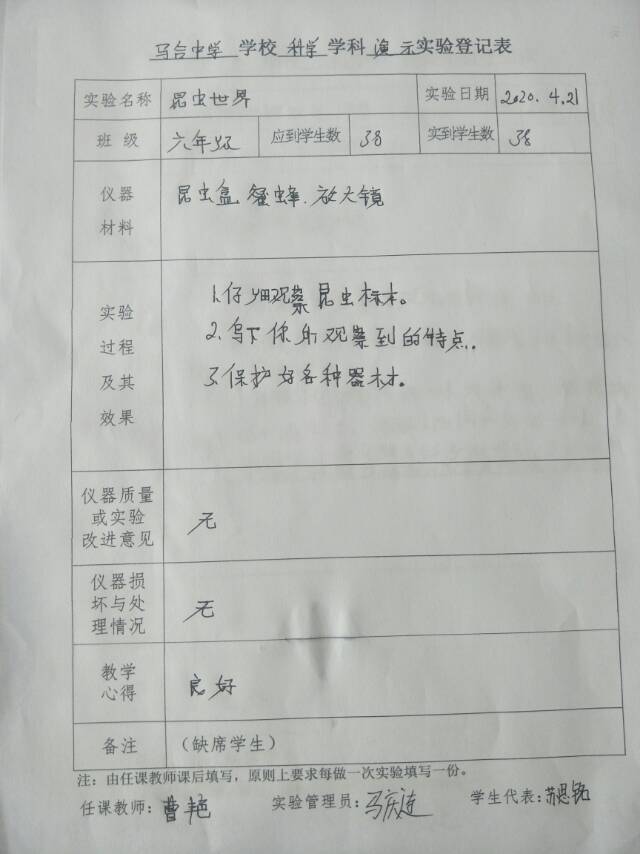 马台中学 学校 科学 学科 演 示实验登记表
实验名称 昆虫世界 实验日期 2020.4.21
班 级 六年级 应到学生数 38 实到学生数 38
仪器
材料
昆虫盒.蜜蜂.放大镜
实验
过程
及其
效果
1.仔细观察昆虫标本。
2.写下你所观察到的特点.
3.保护好各种器材。
仪器质量
或实验
改进意见
无
仪器损
坏与处
理情况
无
教学
心得
良好
备注 (缺席学生)
注：由任课教师课后填写，原则上要求每做一次实验填写一份。
任课教师：曹艳 实验管理员：马庆莲 学生代表：苏思铭